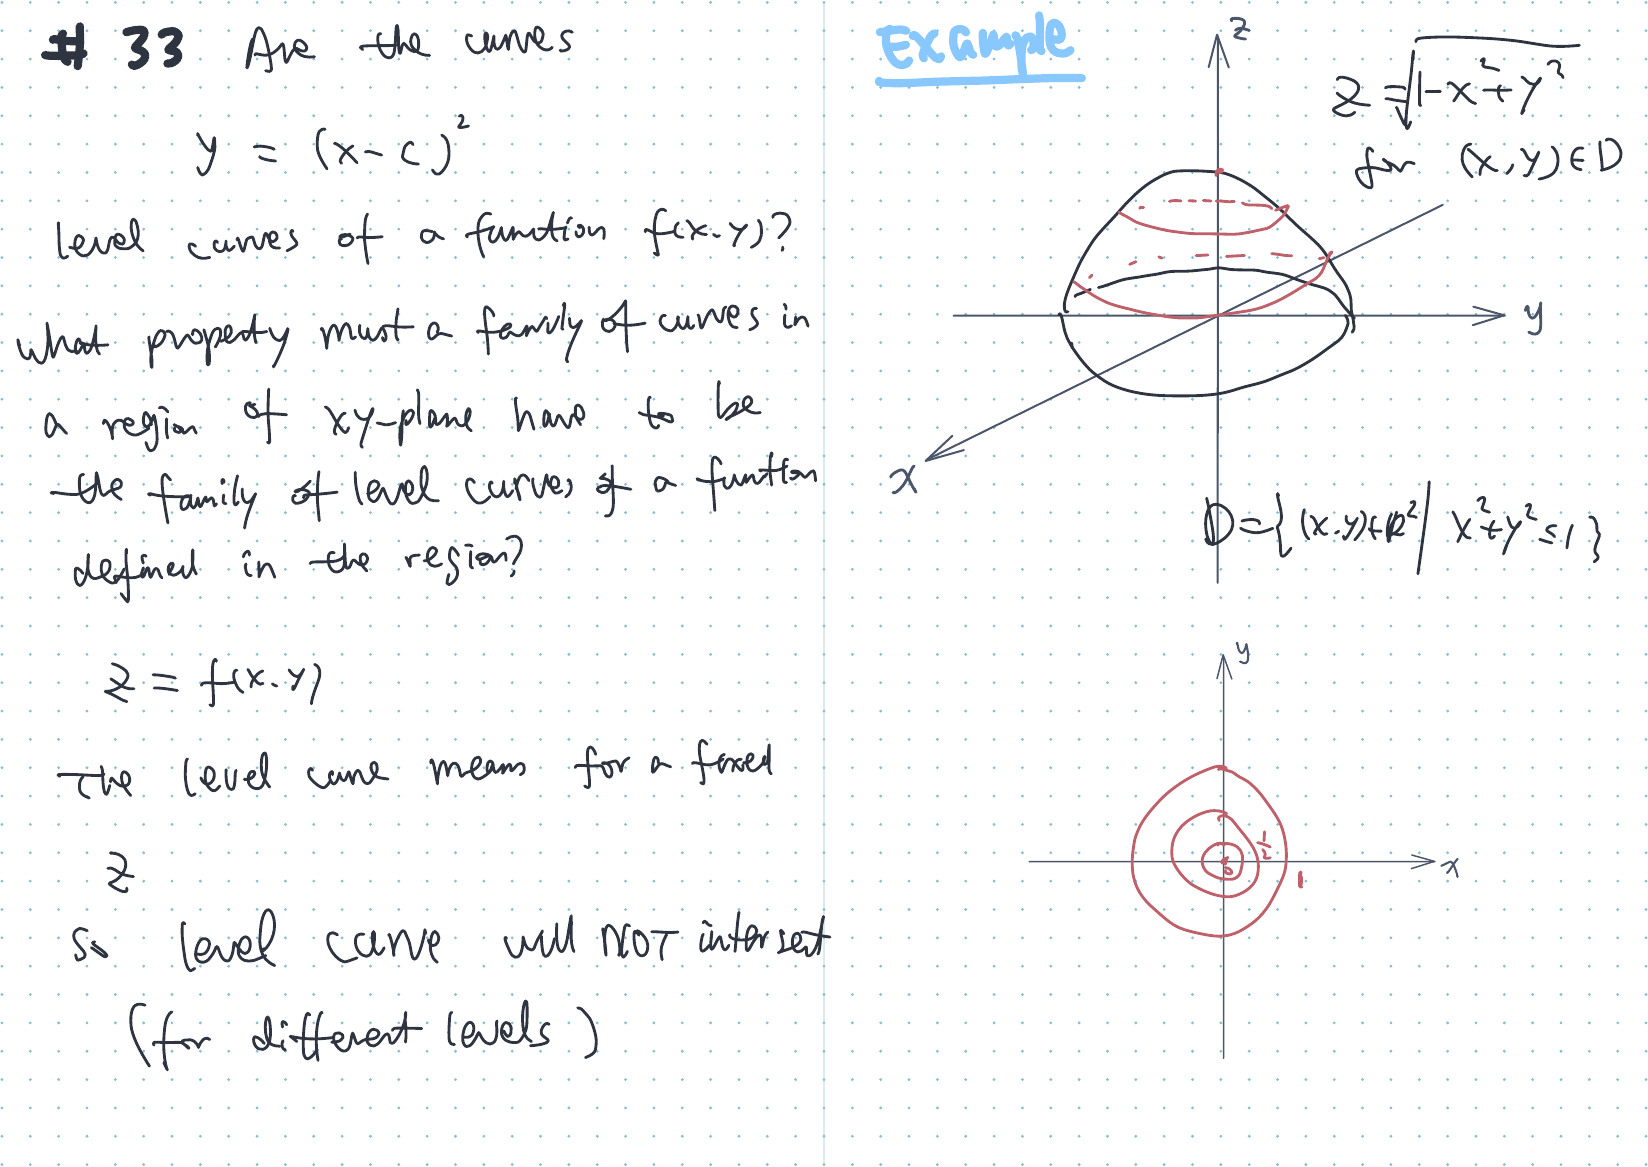 # 33 Are the curves
y = (x-c)²
level curves of a function f(x.y)?
what property must a family of curves in
a region of xy-plane have to be
the family of level curves of a function
defined in the region?
z = f(x.y)
The level curve means for a fixed
z
so level curve will NOT intersect
(for different levels)
Example
z
z = √(1-x²+y²)
for (x,y)∈D
y
x
D={(x.y)∈R² | x²+y²≤1}
y
1/2
0
x
1